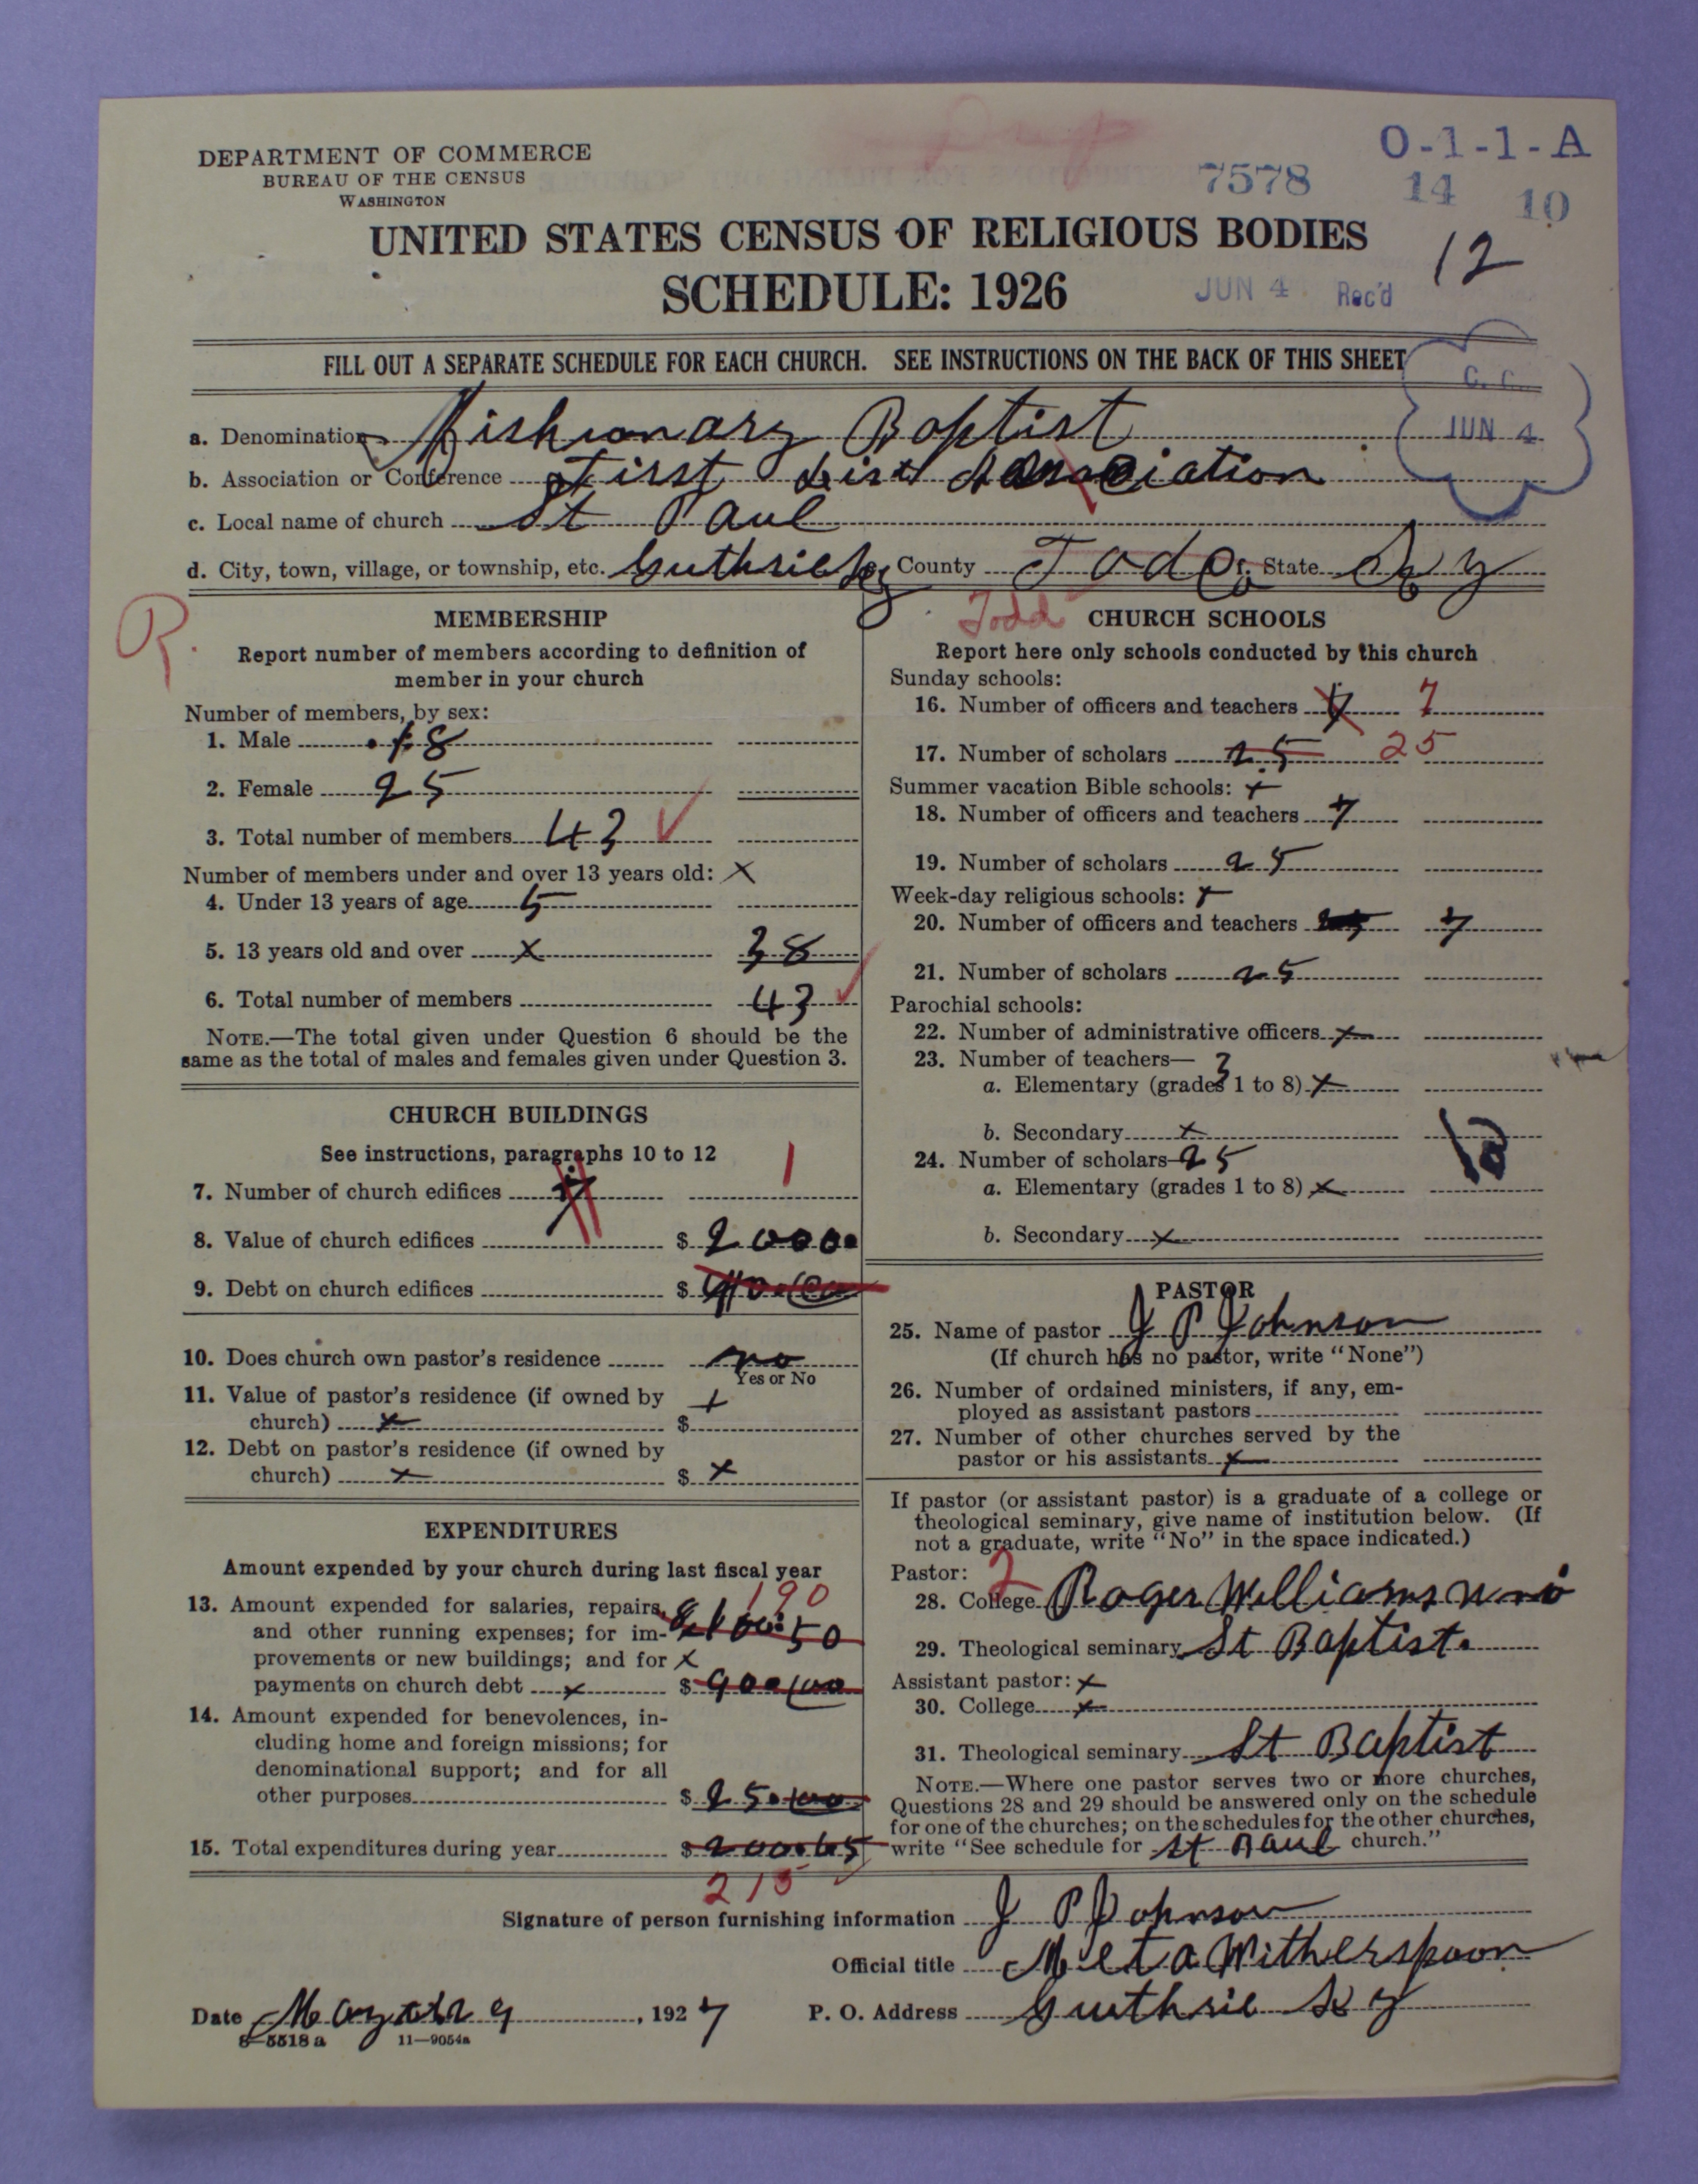 O-1-1-A
DEPARTMENT OF COMMERCE
BUREAU OF THE CENSUS
WASHINGTON
7578 14 10
UNITED STATES CENSUS OF RELIGIOUS BODIES
12
SCHEDULE: 1926
JUN 4 Rec'd
FILL OUT A SEPARATE SCHEDULE FOR EACH CHURCH. SEE INSTRUCTIONS ON THE BACK OF THIS SHEET
C. C.
JUN 4
a. Denomination Mishionary Baptist
b. Association or Conference First Dist Association
c. Local name of church St Paul
d. City, town, village, or township, etc. Guthrie Ky County Todd Co. State Ky
R.
MEMBERSHIP
Report number of members according to definition of
member in your church
Number of members, by sex:
1. Male 18
2. Female 25
3. Total number of members 43 ✓
Number of members under and over 13 years old: X
4. Under 13 years of age 5
5. 13 years old and over X 38
6. Total number of members 43 ✓
NOTE.—The total given under Question 6 should be the
same as the total of males and females given under Question 3.
CHURCH BUILDINGS
See instructions, paragraphs 10 to 12
7. Number of church edifices 1
8. Value of church edifices $ 2000
9. Debt on church edifices $
10. Does church own pastor's residence no
Yes or No
11. Value of pastor's residence (if owned by
church) x $ x
12. Debt on pastor's residence (if owned by
church) x $ x
EXPENDITURES
Amount expended by your church during last fiscal year
190
13. Amount expended for salaries, repairs,
and other running expenses; for im-
provements or new buildings; and for x
payments on church debt x $ 900.00
14. Amount expended for benevolences, in-
cluding home and foreign missions; for
denominational support; and for all
other purposes $ 25.00
15. Total expenditures during year $ 200.65
215
Todd
CHURCH SCHOOLS
Report here only schools conducted by this church
Sunday schools:
16. Number of officers and teachers 7 7
17. Number of scholars 25 25
Summer vacation Bible schools: x
18. Number of officers and teachers 7
19. Number of scholars 25
Week-day religious schools: x
20. Number of officers and teachers 7
21. Number of scholars 25
Parochial schools:
22. Number of administrative officers x
23. Number of teachers— 3
a. Elementary (grades 1 to 8) x
b. Secondary x
24. Number of scholars— 25
a. Elementary (grades 1 to 8) x
b. Secondary x
PASTOR
25. Name of pastor J P Johnson
(If church has no pastor, write "None")
26. Number of ordained ministers, if any, em-
ployed as assistant pastors
27. Number of other churches served by the
pastor or his assistants x
If pastor (or assistant pastor) is a graduate of a college or
theological seminary, give name of institution below. (If
not a graduate, write "No" in the space indicated.)
Pastor: 2
28. College Roger Williams
29. Theological seminary St Baptist.
Assistant pastor: x
30. College x
31. Theological seminary St Baptist
NOTE.—Where one pastor serves two or more churches,
Questions 28 and 29 should be answered only on the schedule
for one of the churches; on the schedules for the other churches,
write "See schedule for St Paul church."
Signature of person furnishing information J P Johnson
Official title Meta Witherspoon
Date May 9, 1927 P. O. Address Guthrie Ky
8—5518 a 11—9054a